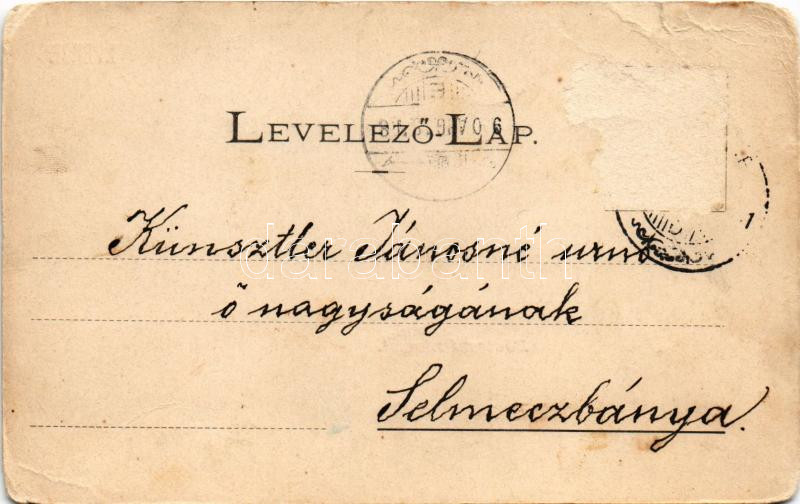 LEVELEZŐ-LAP.
Künsztler Jánosné urnő
ő nagyságának
Selmeczbánya.
darabanth